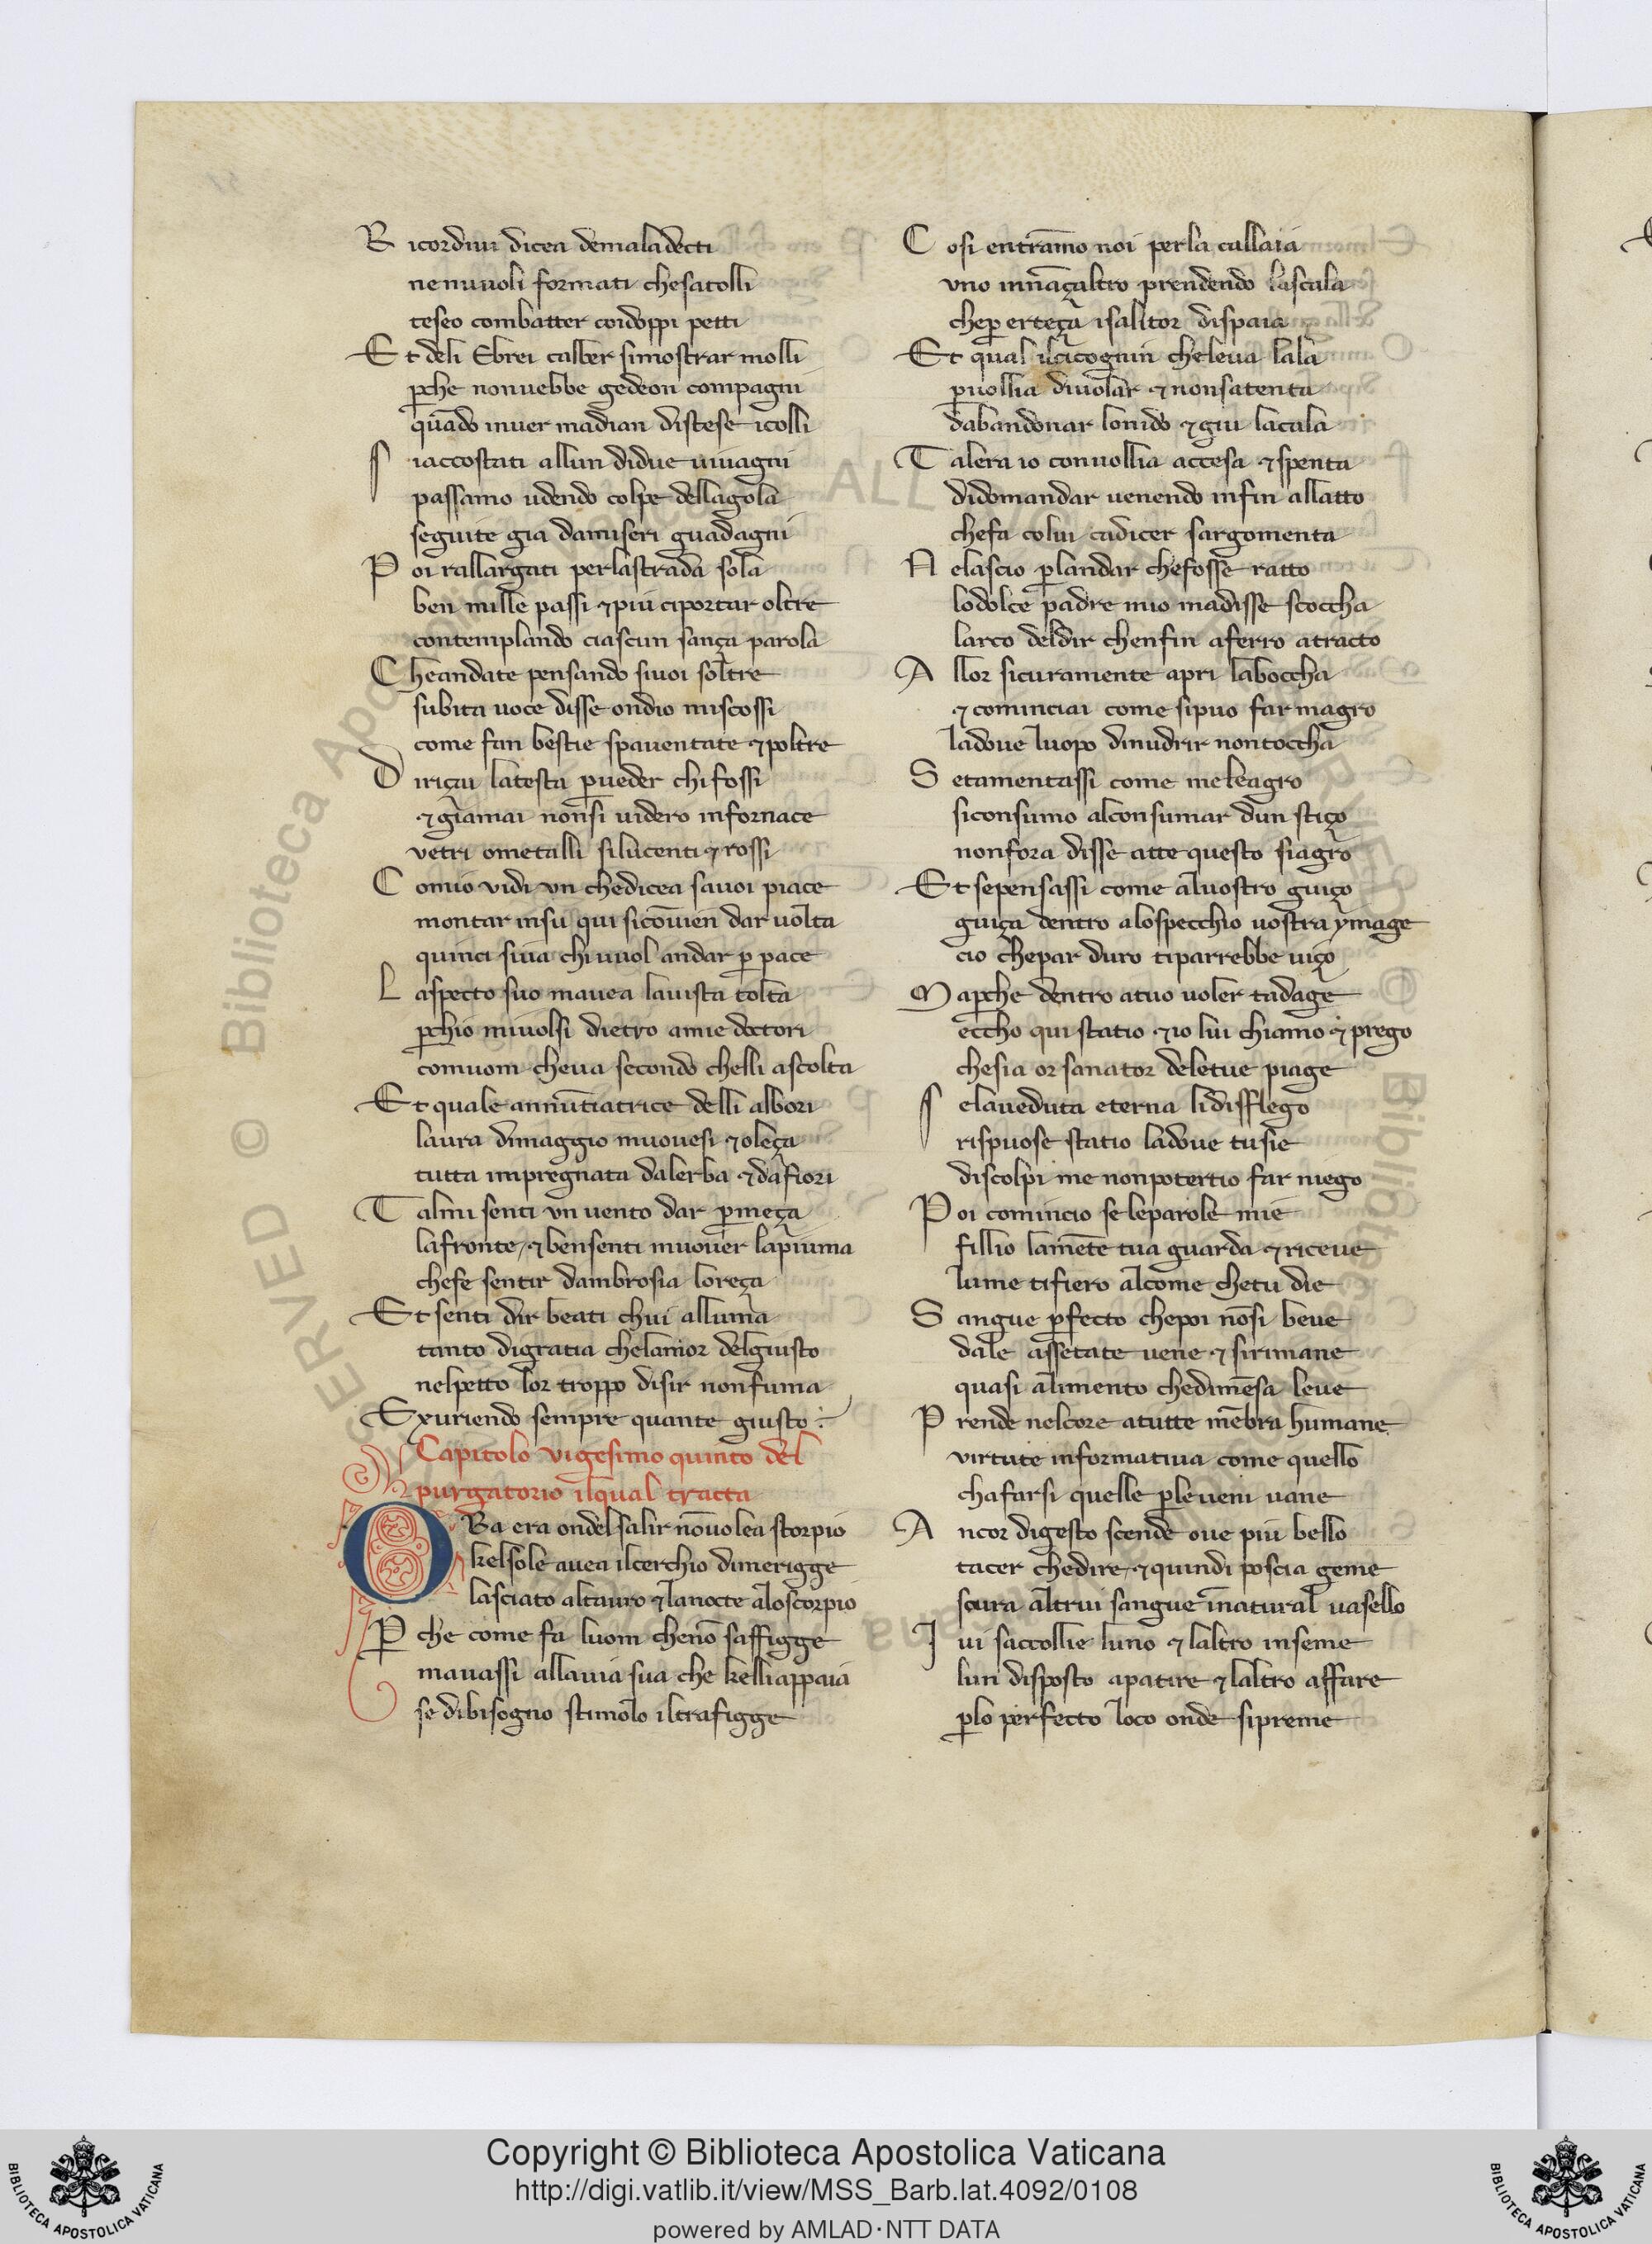 R icordiui dicea demaladecti
nenuuoli formati chesatolli
teseo combatter coidoppi petti
Et deli Ebrei calber simostrar molli
pche nonuebbe gedeon compagni
quādo inuer madian distese icolli
S iaccostati allun didue uiuagni
passamo udendo colpe dellagola
seguite gia damiseri guadagni
P oi rallargati perlastrada sola
ben mille passi ⁊piu ciportar oltre
contemplando ciascun sança parola
Cheandate pensando siuoi soltre
subita uoce disse ondio miscossi
come fan bestie spauentate ⁊poltre
D iriçai latesta pueder chi fossi
⁊giamai nonsi uidero infornace
vetri ometalli silucenti ⁊rossi
C omio vidi vn chedicea sauoi piace
montar insu qui sicōuien dar uolta
quinci siua chi uuol andar p pace
L aspecto suo mauea lauista tolta
pchio miuolsi dietro amie doctori
comuom cheua secondo chelli ascolta
Et quale annūtiatrice delli albori
laura dimaggio muouesi ⁊oleça
tutta impregnata dalerba ⁊dafiori
T almi senti vn uento dar pmeça
lafronte ⁊bensenti muouer lapiuma
chefe sentir dambrosia loreça
Et senti dir beati chui alluma
tanto digratia chelamor delgiusto
nelpetto lor troppo disir nonfuma
Exuriendo sempre quante giusto
Capitolo vigesimo quinto del
purgatorio ilqual tracta
ORa era ondelsalir nōuolea storpio
kelsole auea ilcerchio dimerigge
lasciato altauro ⁊lanocte aloscorpio
P che come fa luom chenō saffigge
mauassi allauia sua che kelliappaia
se dibisogno stimolo iltrafigge
C osi entrāmo noi perla callaia
vno innāçaltro prendendo lascala
chep erteça isalitor dispaia
Et qual ilcicognin cheleua lala
puollia diuolar ⁊nonsatenta
dabandonar lonido ⁊giu lacala
T alera io conuollia accesa ⁊spenta
didomandar uenendo infin allatto
chefa colui cadicer sargomenta
N elascio plandar chefosse ratto
lodolce padre mio madisse scoccha
larco deldir chenfin aferro atracto
A llor sicuramente apri laboccha
⁊cominciai come sipuo far magro
ladoue luopo dinudrir nontoccha
S etamentassi come meleagro
siconsumo alconsumar dun stiço
nonfora disse atte questo siagro
Et sepensassi come aluostro guiço
guiça dentro alospecchio uostra ymage
cio chepar duro tiparrebbe uiço
M apche dentro atuo uoler tadage
eccho qui statio ⁊io lui chiamo ⁊prego
chesia or sanator deletue piage
S elaueduta eterna lidisflego
rispuose statio ladoue tusie
discolpi me nonpotertio far niego
P oi comincio seleparole mie
fillio lamēte tua guarda ⁊riceue
lume tifiero alcome chetu die
S angue pfecto chepoi nōsi beue
dale assetate uene ⁊sirimane
quasi alimento chedimēsa leue
P rende nelcore atutte mēbra humane
virtute informatiua come quello
chafarsi quelle pleueni uane
A ncor digesto scende oue piu bello
tacer chedire ⁊quindi poscia geme
soura altrui sangue īnatural uasello
I ui saccollie luno ⁊laltro inseme
lun disposto apatire ⁊laltro affare
plo perfecto loco onde sipreme
Copyright © Biblioteca Apostolica Vaticana
http://digi.vatlib.it/view/MSS_Barb.lat.4092/0108
powered by AMLAD·NTT DATA
BIBLIOTECA APOSTOLICA VATICANA
BIBLIOTECA APOSTOLICA VATICANA